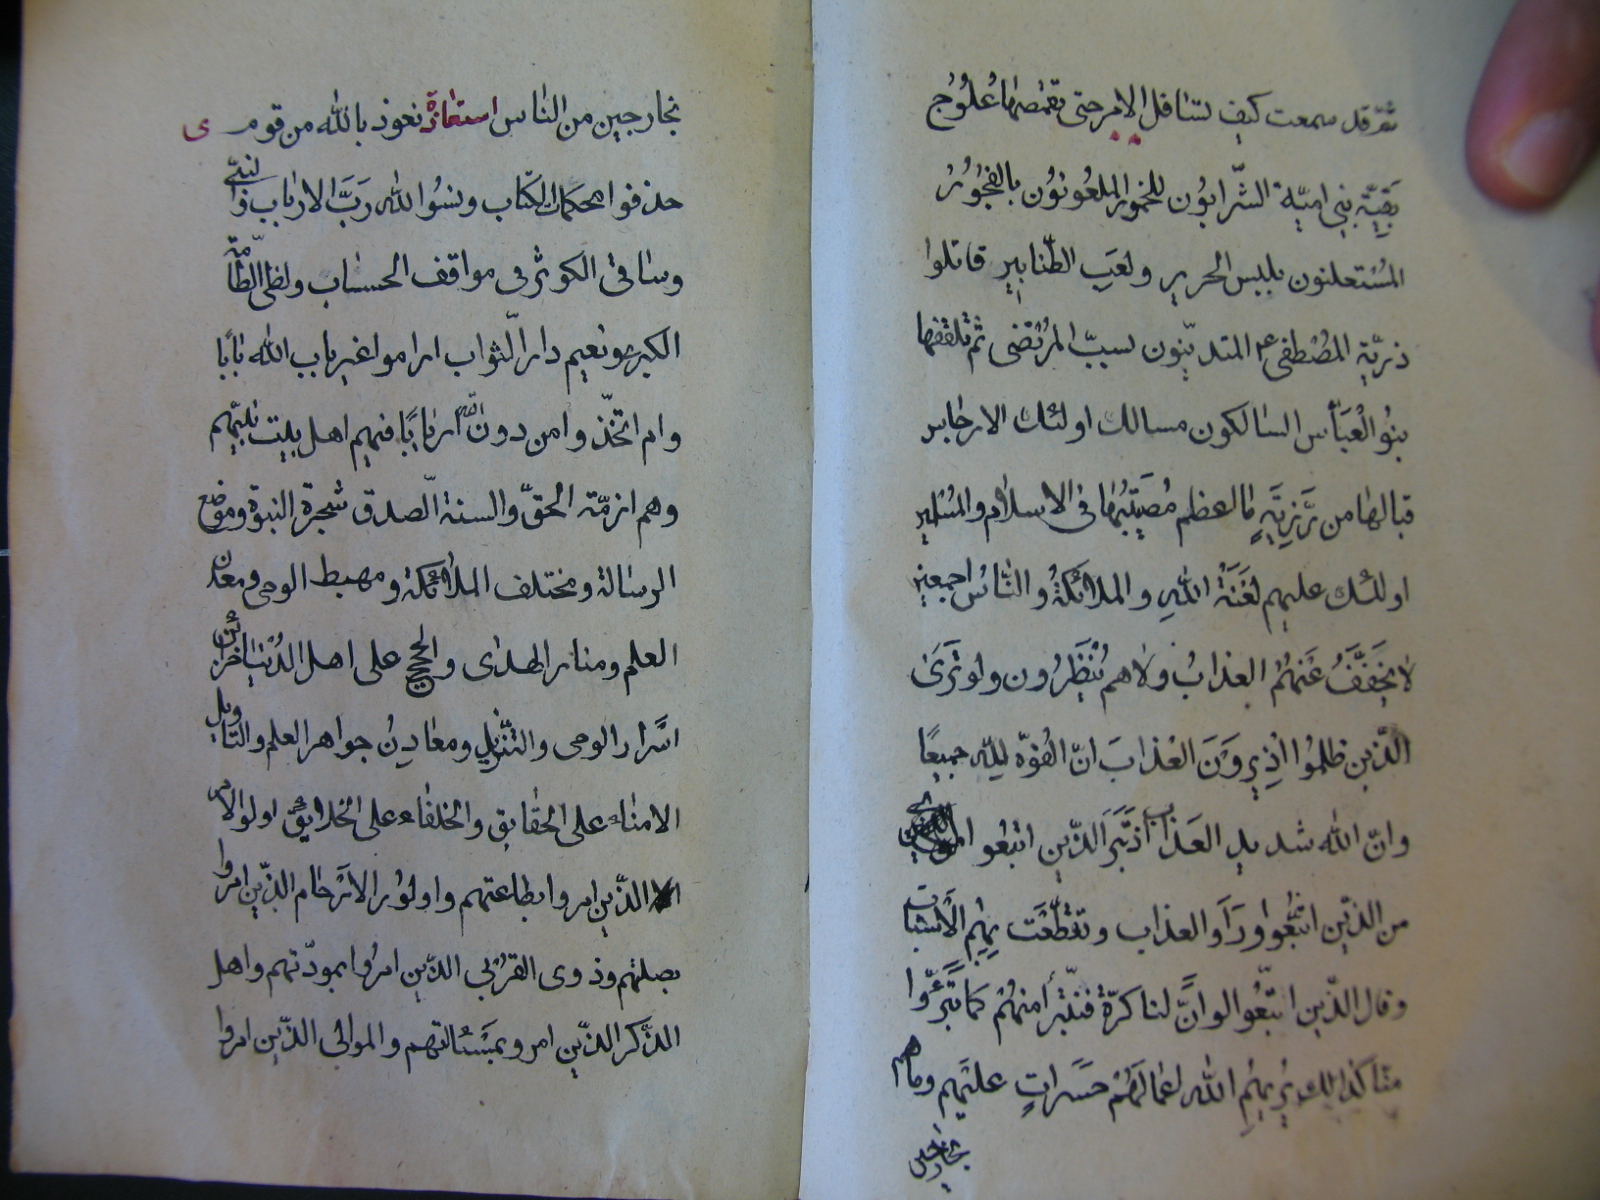 ثمّ قد سمعت كيف تسافل الامر حتى تقمصها عُلوُج
بَقيّة بني اميّة الشّرابوُن للخموُر الملعوُنوُن بالفجُوُر
المُستعلنون بلبس الحرير ولعَب الطّنابير قاتلوا
ذريّة المُصْطفى ع المتديّنون بسبّ المُرتضى ثم تلقفها
بنوُ العبّاس السالكون مسالك اولئك الارجاس
فيالها من رَزيّةٍ ما اعظم مُصيبتها في الاسلام والمُسلمين
اولئك عليهم لعْنَة اللهِ والملائكة والنّاس اجمعين
لا يخَفّفُ عَنهُمُ العذابُ ولا هم يُنظَرُون ولو تَرىَ
الذّين ظلمُوا اذ يرَوَنَ العَذابَ انّ القُوّة للهِ جميعًا
وانّ الله شديد العَذاب اذ تَبَرّءَ الذّين اتبعُوا
من الذّين اتّبعُوا ورَأَو العذاب وتقطّعَت بهِمُ الأسْباب
وقال الذّين اتّبعُوا لو انَّ لنا كرّة فنتبرّأ منهُمْ كما تَبَرّءوا
منّا كذلك يُريهِمُ الله اعمالَهُمْ حسَراتٍ عليَهم وما هم
بخارجين
بخارجين من النّاس استعاذة نعوذ بالله من قوم
حذفوا محكمات الكتاب ونسُوا الله رَبَّ الارباب والنبيّ
وساقي الكوثر في مواقف الحساب ولظى الطّامّة
الكبرى ونعيم دار الثّواب ام راموا غير باب الله بابًا
وام اتخّذوا من دون الله اربابًا فيهم اهل بيت نبيّهم
وهم ازمّة الحقّ والسنة الصّدق شجرة النبوّة وموضع
الرسالة ومختلف الملائكة ومهبط الوحى ومعدن
العلم ومنار الهدى والحجج على اهل الدُنيا خزائن
اسَرار الوحى والتنزيل ومعادِنُ جواهر العلم والتّاويل
الامناء على الحقايق والخلفاء على الخلائق اولوا الامر
الذّين امروا بطاعتهم واولوُا الاَرحام الذّين امروا
بصلتهم وذوى القرُبى الذّين امرُوا بمودّتهم واهل
الذّكر الذّين امروُ بمَسْئالتهم والموالى الذّين امروا